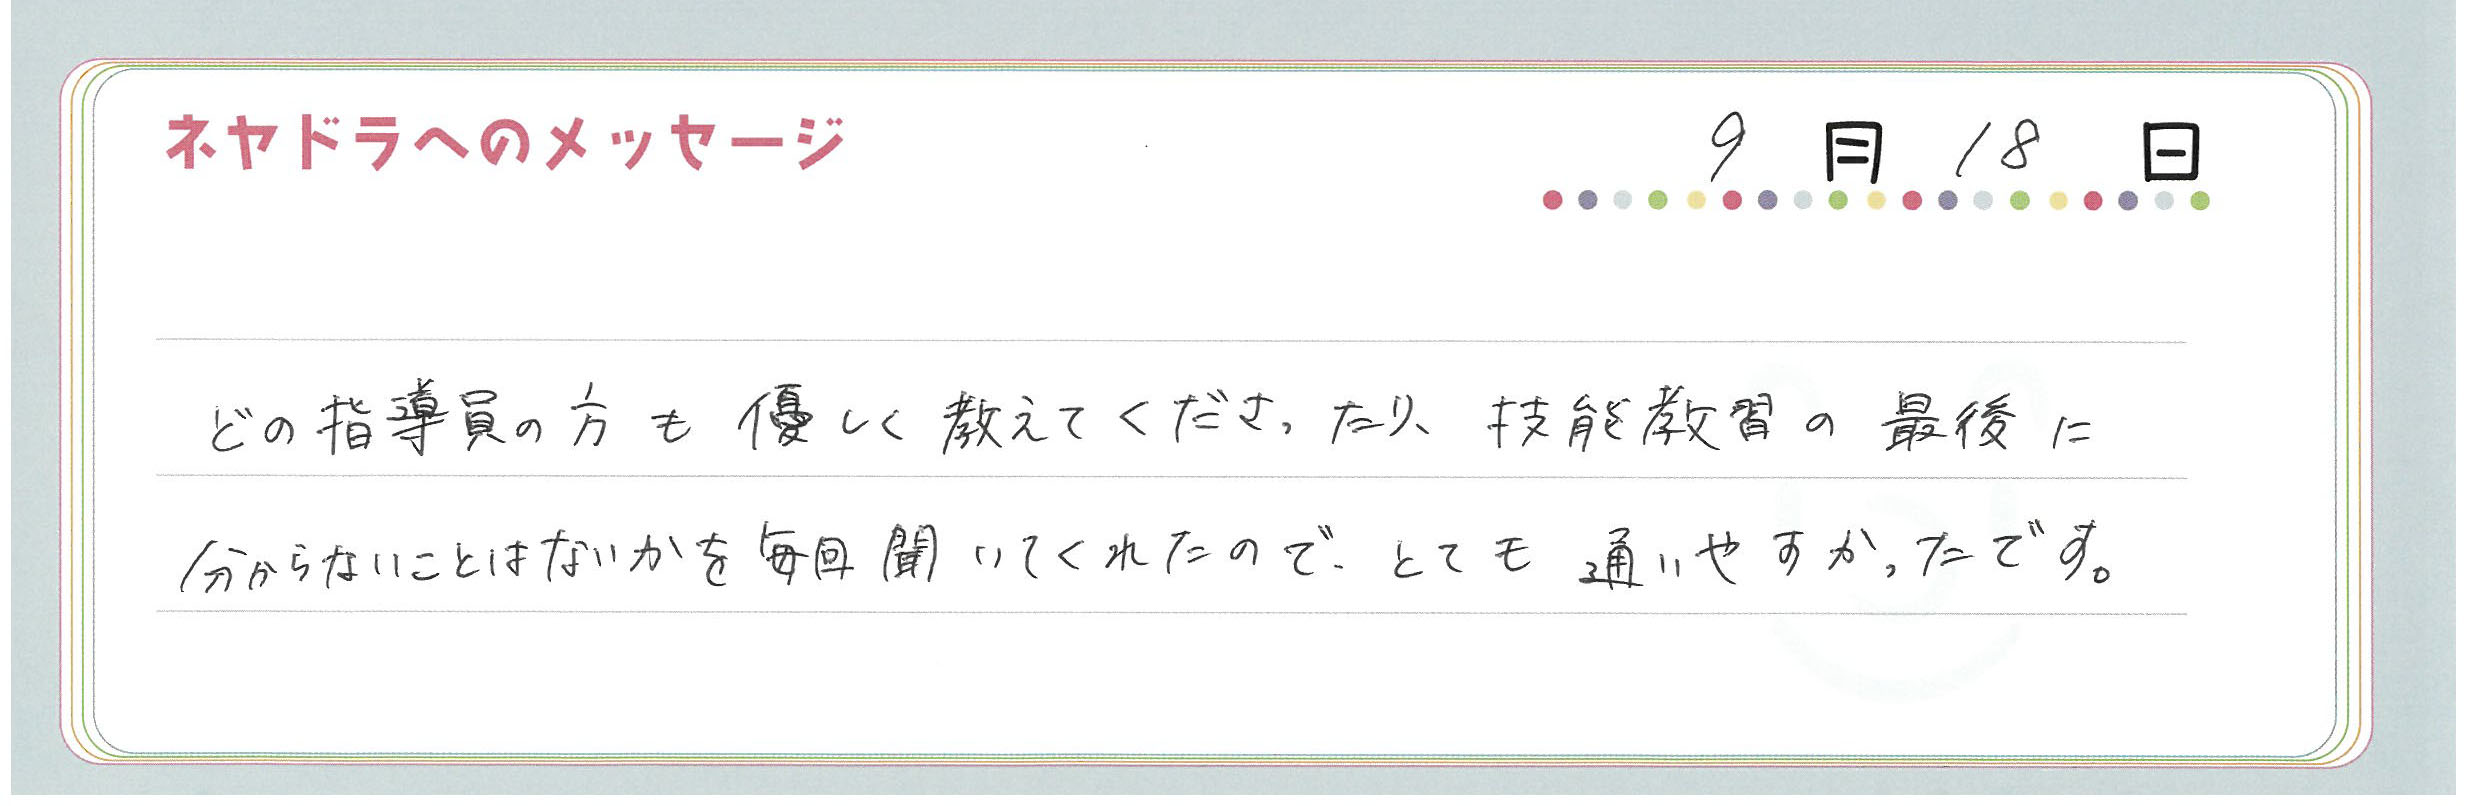 ネヤドラへのメッセージ
9月18日
どの指導員の方も優しく教えてくださったり、技能教習の最後に
分からないことはないかを毎回聞いてくれたので、とても通いやすかったです。